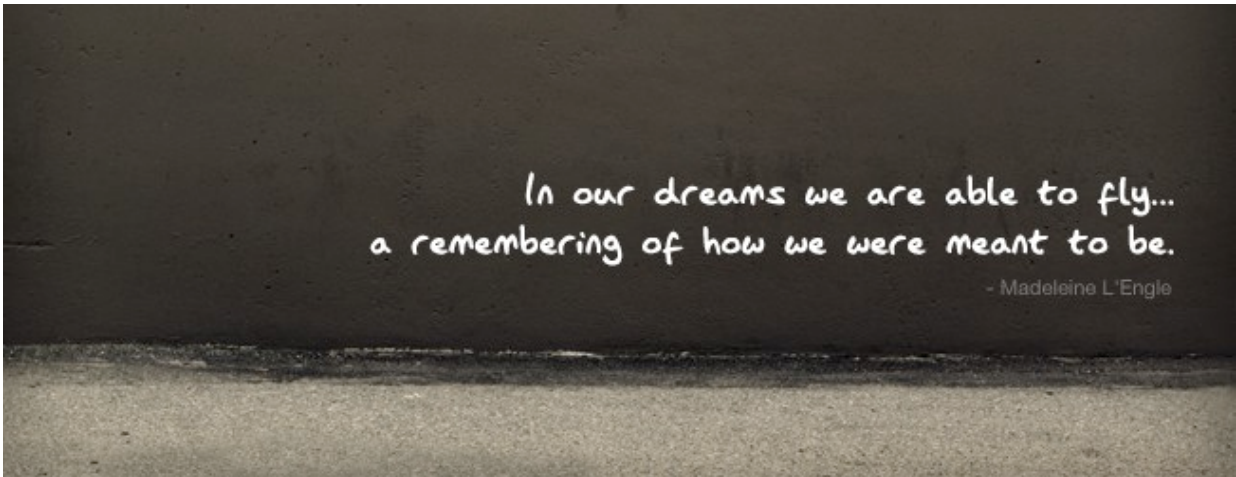 In our dreams we are able to fly...
a remembering of how we were meant to be.
- Madeleine L'Engle